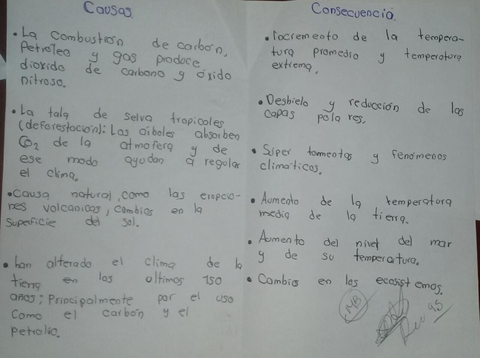 Causas
• La combustión de carbón,
Petroleo y gas produce
dioxido de carbono y óxido
nitroso.
• La tala de selva tropicales
(deforestación): Los árboles absorben
CO2 de la atmofera y de
ese modo ayudan a regular
el clima.
• Causa natural, como las erupcio-
nes volcanicas, cambios en la
superficie del sol.
• han alterado el clima de la
tierra en los ultimos 150
años; Principalmente por el uso
como el carbón y el
petrolio.
Consecuencia
• Incremento de la tempera-
tura promedio y temperatura
extrema.
• Deshielo y reducción de las
capas polares.
• Súper tomentas y fenómenos
climáticos.
• Aumento de la temperatura
media de la tierra.
• Aumento del nivel del mar
y de su temperatura.
• Cambios en los ecosistemas.
MB